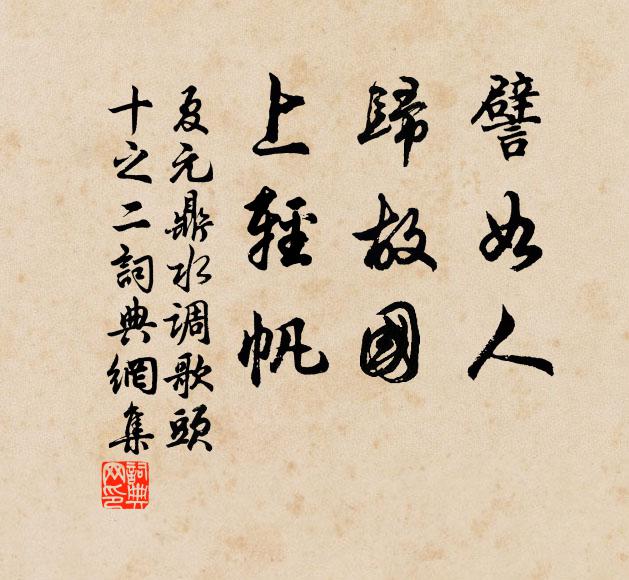 譬如人
歸故國
上輕帆
夏元鼎水调歌頭
十之二詞典網集
詞典网印